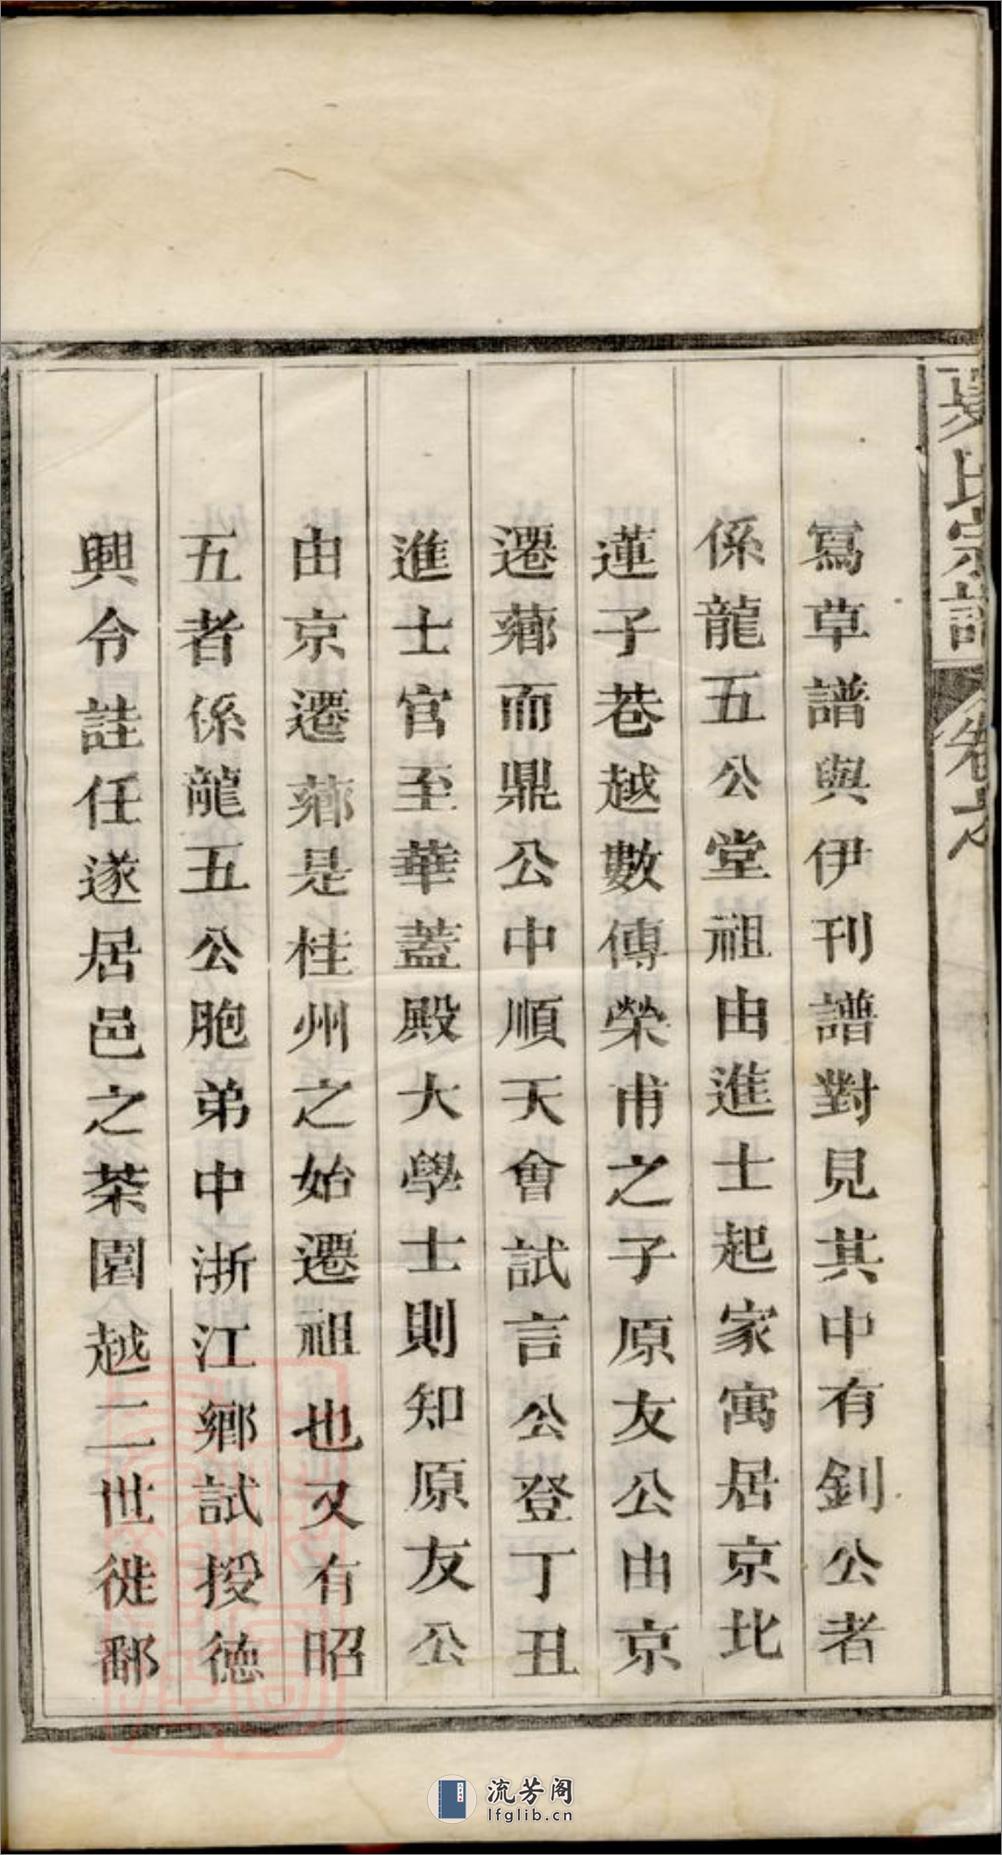 夏氏宗譜 卷之
寫草譜與伊刊譜對見其中有釗公者
係龍五公堂祖由進士起家寓居京北
蓮子巷越數傳榮甫之子原友公由京
遷薌而鼎公中順天會試言公登丁丑
進士官至華蓋殿大學士則知原友公
由京遷薌是桂州之始遷祖也又有昭
五者係龍五公胞弟中浙江鄉試授德
興令詿任遂居邑之茶園越二世徙鄱
流芳阁
lfglib.cn